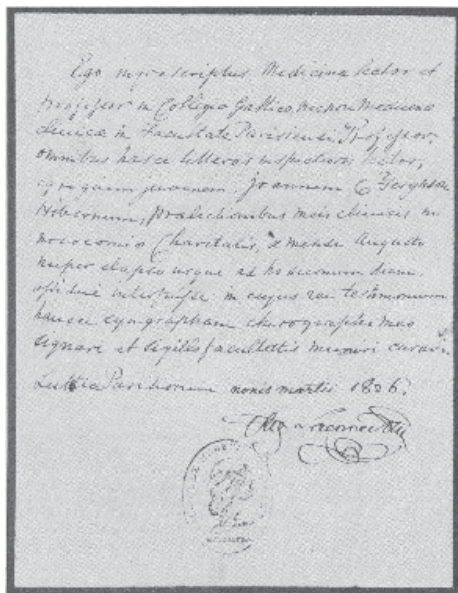 Ego infra scriptus Medicinae Doctor et
professor in Collegio Gallico, necnon Medicinae
clinicae in Facultate Parisiensi Professor,
omnibus hasce litteras inspecturis testor,
egregium juvenem Joannem C Ferguson
Hibernum, praelectionibus meis clinicis in
nosocomio Charitatis, a mense Augusto
nuper elapso usque ad hodiernum diem,
assidue interfuisse in cujus rei testimonium
hancce syngrapham chirographo meo
signare et sigillo facultatis muniri curavi.
Parisiorum nonis martii 1826.